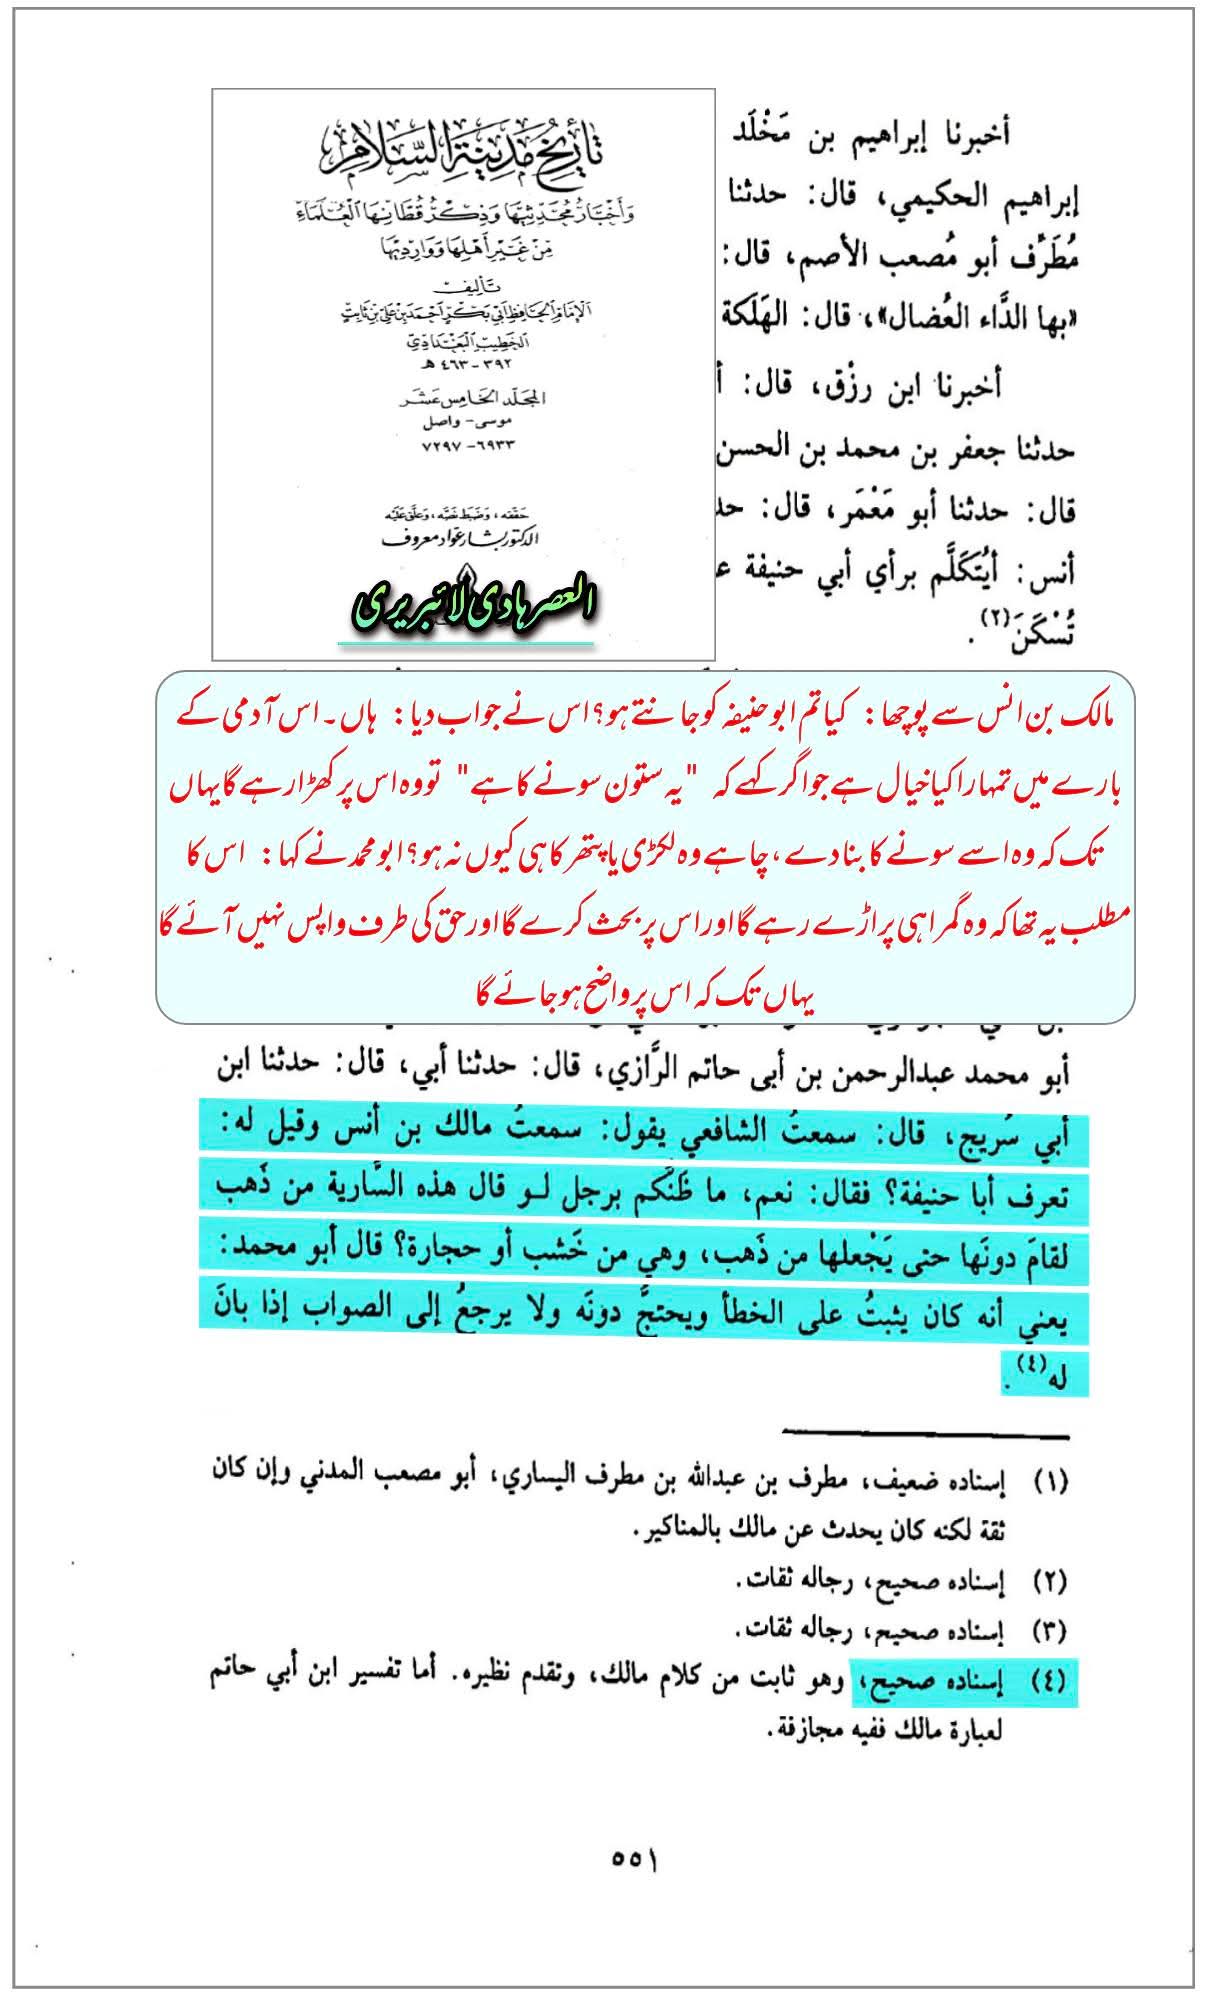 أخبرنا إبراهيم بن مَخْلَد
إبراهيم الحكيمي، قال: حدثنا
مُطَرِّف أبو مُصعب الأصم، قال:
«بها الدَّاء العُضال»، قال: الهَلَكة
أخبرنا ابن رزْق، قال: أ
حدثنا جعفر بن محمد بن الحسن
قال: حدثنا أبو مَعْمَر، قال: حد
أنس: أيُتكَلَّم برأي أبي حنيفة ع
تُسْكَنَ(٢).
تاريخ مدينة السلام
وأخبار محدثيها وذكر قطانها العلماء
من غير أهلها ووارديها
تأليف
الإمام الحافظ أبي بكر أحمد بن علي بن ثابت
الخطيب البغدادي
٣٩٢ - ٤٦٣ هـ
المجلد الخامس عشر
موسى - واصل
٦٩٣٣ - ٧٢٩٧
حققه، وضبط نصه، وعلق عليه
الدكتور بشار عواد معروف
العصر ہادی لائبریری
مالک بن انس سے پوچھا: کیا تم ابو حنیفہ کو جانتے ہو؟ اس نے جواب دیا: ہاں۔ اس آدمی کے
بارے میں تمہارا کیا خیال ہے جو اگر کہے کہ "یہ ستون سونے کا ہے" تو وہ اس پر کھڑا رہے گا یہاں
تک کہ وہ اسے سونے کا بنا دے، چاہے وہ لکڑی یا پتھر کا ہی کیوں نہ ہو؟ ابو محمد نے کہا: اس کا
مطلب یہ تھا کہ وہ گمراہی پر اڑے رہے گا اور اس پر بحث کرے گا اور حق کی طرف واپس نہیں آئے گا
یہاں تک کہ اس پر واضح ہو جائے گا
أبو محمد عبدالرحمن بن أبى حاتم الرَّازي، قال: حدثنا أبي، قال: حدثنا ابن
أبي سُريج، قال: سمعتُ الشافعي يقول: سمعتُ مالك بن أنس وقيل له:
تعرف أبا حنيفة؟ فقال: نعم، ما ظَنُّكم برجل لو قال هذه السَّارية من ذَهب
لقامَ دونَها حتى يَجْعلها من ذَهب، وهي من خَشب أو حجارة؟ قال أبو محمد:
يعني أنه كان يثبتُ على الخطأ ويحتجَّ دونَه ولا يرجعُ إلى الصواب إذا بانَ
له(٤).
(١) إسناده ضعيف، مطرف بن عبدالله بن مطرف اليساري، أبو مصعب المدني وإن كان
ثقة لكنه كان يحدث عن مالك بالمناكير.
(٢) إسناده صحيح، رجاله ثقات.
(٣) إسناده صحيح، رجاله ثقات.
(٤) إسناده صحيح، وهو ثابت من كلام مالك، وتقدم نظيره. أما تفسير ابن أبي حاتم
لعبارة مالك ففيه مجازفة.
٥٥١